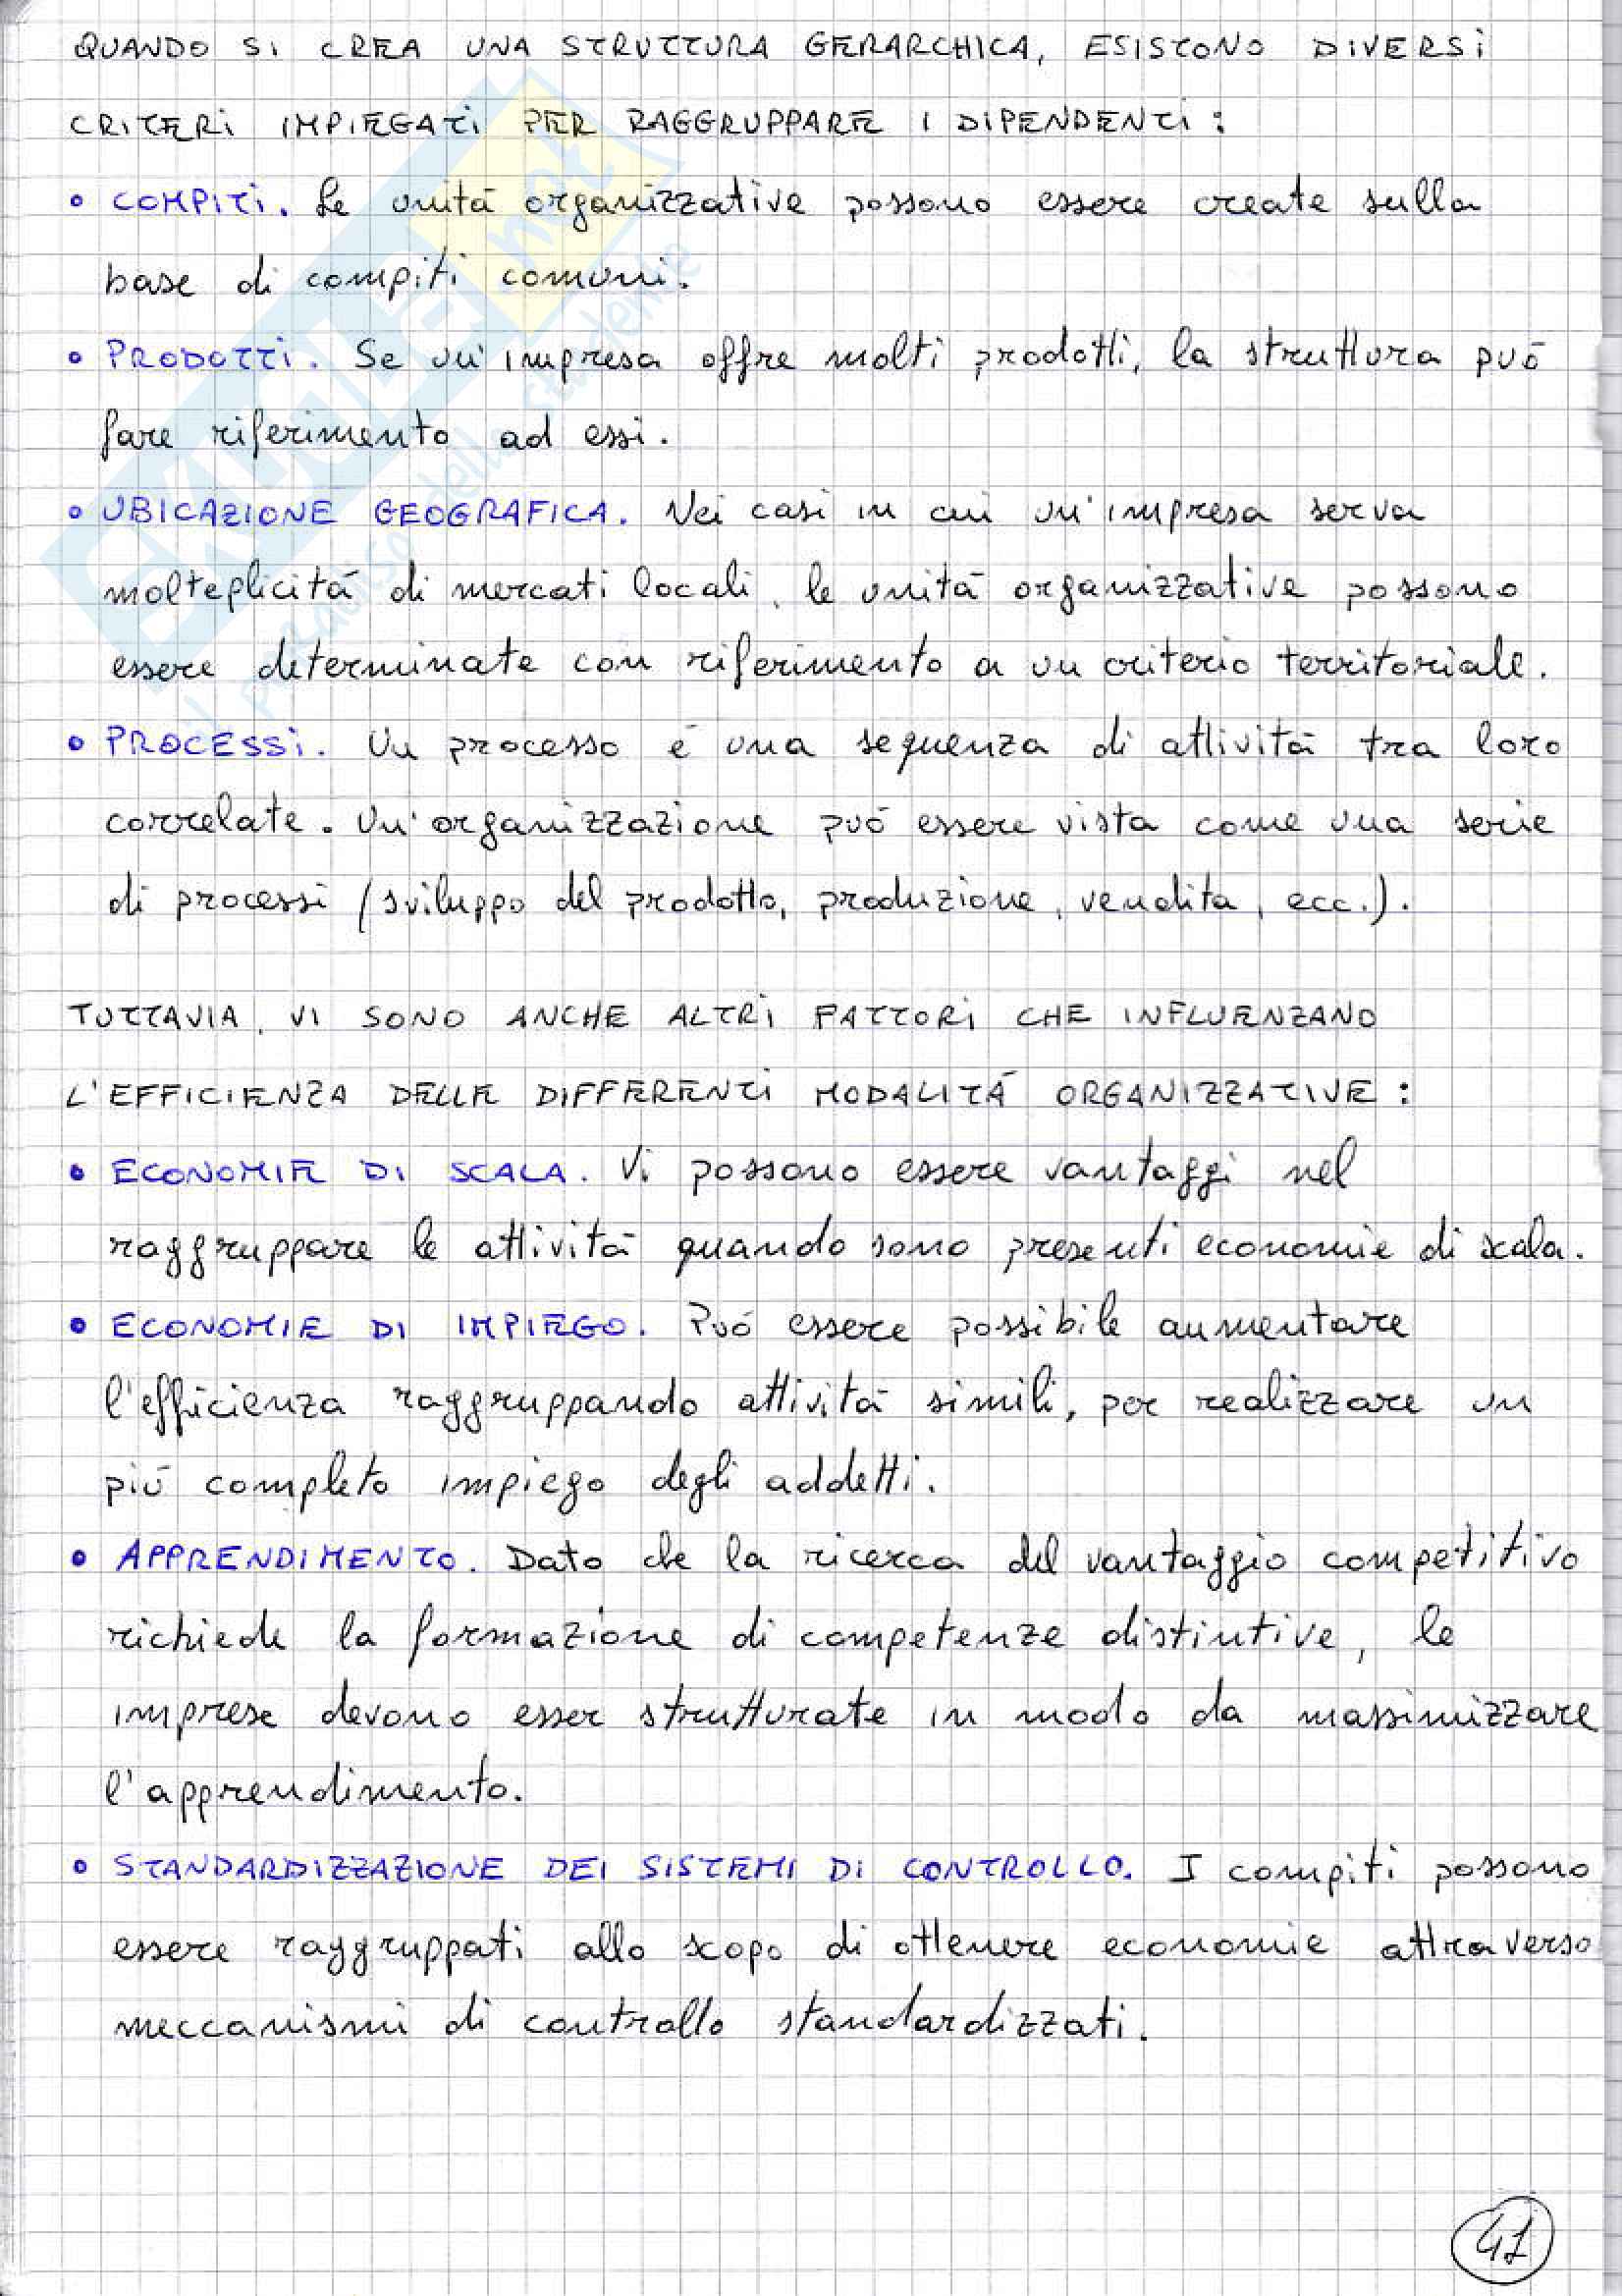 QUANDO SI CREA UNA STRUTTURA GERARCHICA, ESISTONO DIVERSI
CRITERI IMPIEGATI PER RAGGRUPPARE I DIPENDENTI:
• COMPITI. Le unità organizzative possono essere create sulla
base di compiti comuni.
• PRODOTTI. Se un'impresa offre molti prodotti, la struttura può
fare riferimento ad essi.
• UBICAZIONE GEOGRAFICA. Nei casi in cui un'impresa serva
molteplicità di mercati locali, le unità organizzative possono
essere determinate con riferimento a un criterio territoriale.
• PROCESSI. Un processo è una sequenza di attività tra loro
correlate. Un'organizzazione può essere vista come una serie
di processi (sviluppo del prodotto, produzione, vendita, ecc.).
TUTTAVIA, VI SONO ANCHE ALTRI FATTORI CHE INFLUENZANO
L'EFFICIENZA DELLE DIFFERENTI MODALITÀ ORGANIZZATIVE:
• ECONOMIE DI SCALA. Vi possono essere vantaggi nel
raggruppare le attività quando sono presenti economie di scala.
• ECONOMIE DI IMPIEGO. Può essere possibile aumentare
l'efficienza raggruppando attività simili, per realizzare un
più completo impiego degli addetti.
• APPRENDIMENTO. Dato che la ricerca del vantaggio competitivo
richiede la formazione di competenze distintive, le
imprese devono esser strutturate in modo da massimizzare
l'apprendimento.
• STANDARDIZZAZIONE DEI SISTEMI DI CONTROLLO. I compiti possono
essere raggruppati allo scopo di ottenere economie attraverso
meccanismi di controllo standardizzati.
41
SKUOLA.net
il paradiso dello studente